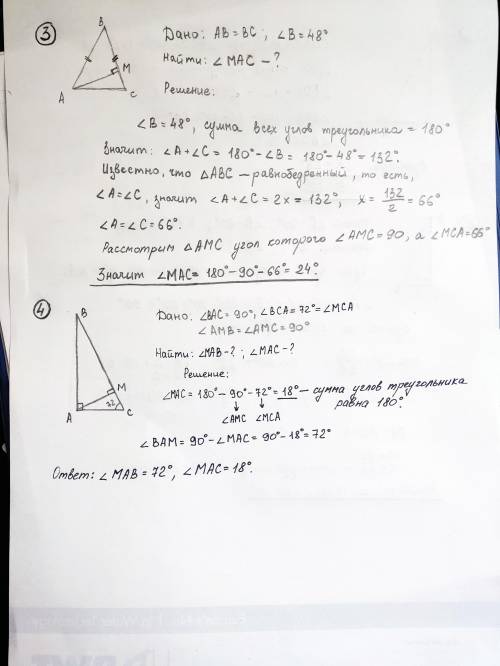 3
B
A
M
C
Дано: AB = BC; ∠B = 48°
Найти: ∠MAC - ?
Решение:
∠B = 48°, сумма всех углов треугольника = 180°
Значит: ∠A + ∠C = 180° - ∠B = 180° - 48° = 132°.
Известно, что △ABC - равнобедренный, то есть,
∠A = ∠C, значит ∠A + ∠C = 2x = 132°, x = 132/2 = 66°
∠A = ∠C = 66°.
Рассмотрим △AMC угол которого ∠AMC = 90, а ∠MCA = 66°
Значит ∠MAC = 180° - 90° - 66° = 24°.
4
B
A
M
C
72
Дано: ∠BAC = 90°, ∠BCA = 72° = ∠MCA
∠AMB = ∠AMC = 90°
Найти: ∠MAB - ? ; ∠MAC - ?
Решение:
∠MAC = 180° - 90° - 72° = 18° - сумма углов треугольника
равна 180°.
∠AMC ∠MCA
∠BAM = 90° - ∠MAC = 90° - 18° = 72°
Ответ: ∠MAB = 72°, ∠MAC = 18°.